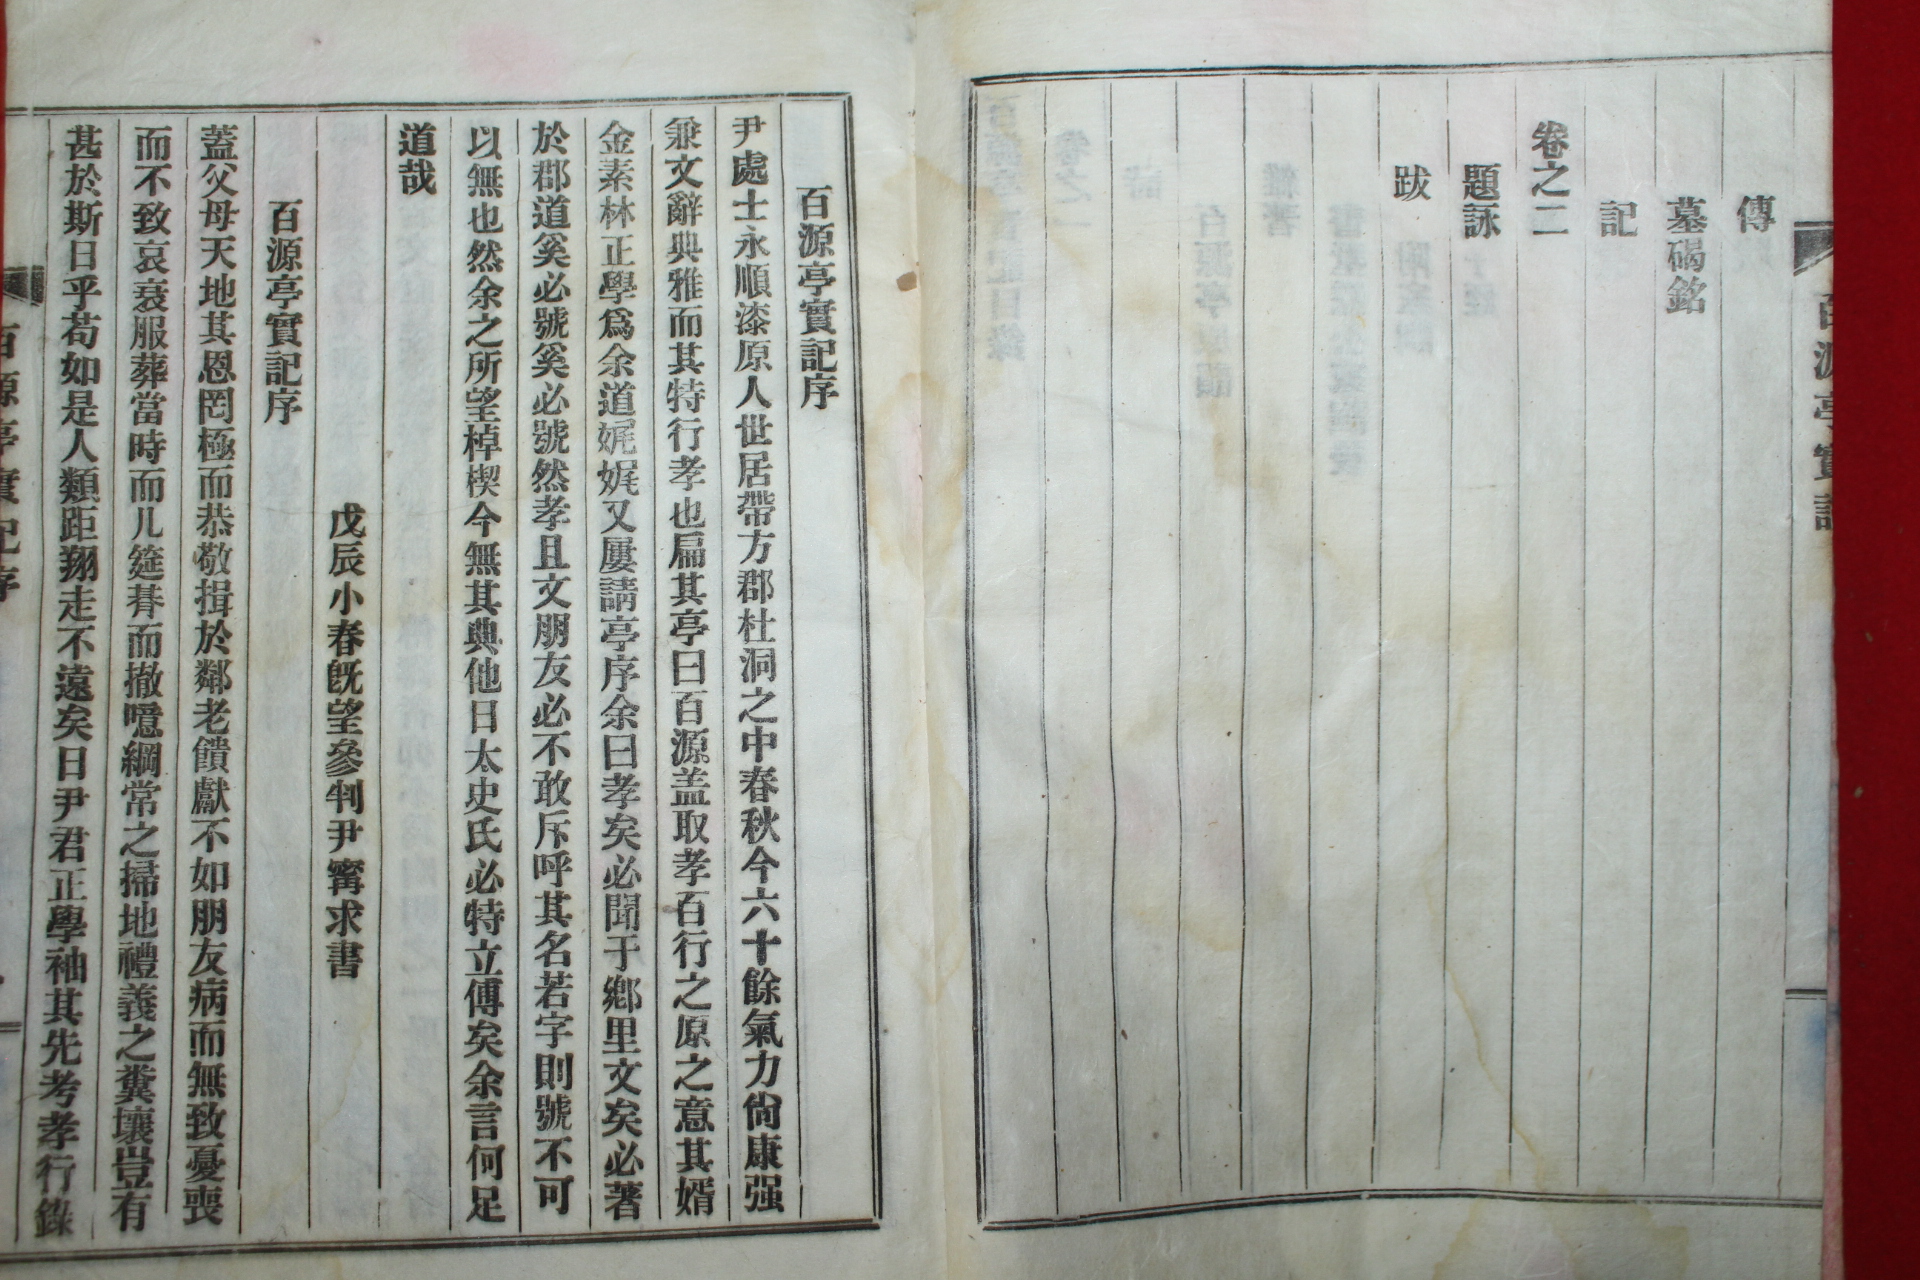 百源亭實記
傳
墓碣銘
記
卷之二
題詠
跋
百源亭實記序
尹處士永順漆原人世居帶方郡杜洞之中春秋今六十餘氣力尙康强
兼文辭典雅而其特行孝也扁其亭曰百源盖取孝百行之原之意其婿
金素林正學爲余道娓娓又屢請亭序余曰孝矣必聞于鄕里文矣必著
於郡道奚必號奚必號然孝且文朋友必不敢斥呼其名若字則號不可
以無也然余之所望棹楔今無其典他日太史氏必特立傳矣余言何足
道哉
戊辰小春旣望參判尹甯求書
百源亭實記序
蓋父母天地其恩罔極而恭敬揖於鄰老饋獻不如朋友病而無致憂喪
而不致哀衰服葬當時而儿筵朞而撤噫綱常之掃地禮義之糞壤豈有
甚於斯日乎苟如是人類距翔走不遠矣日尹君正學袖其先考孝行錄
百源亭實記序